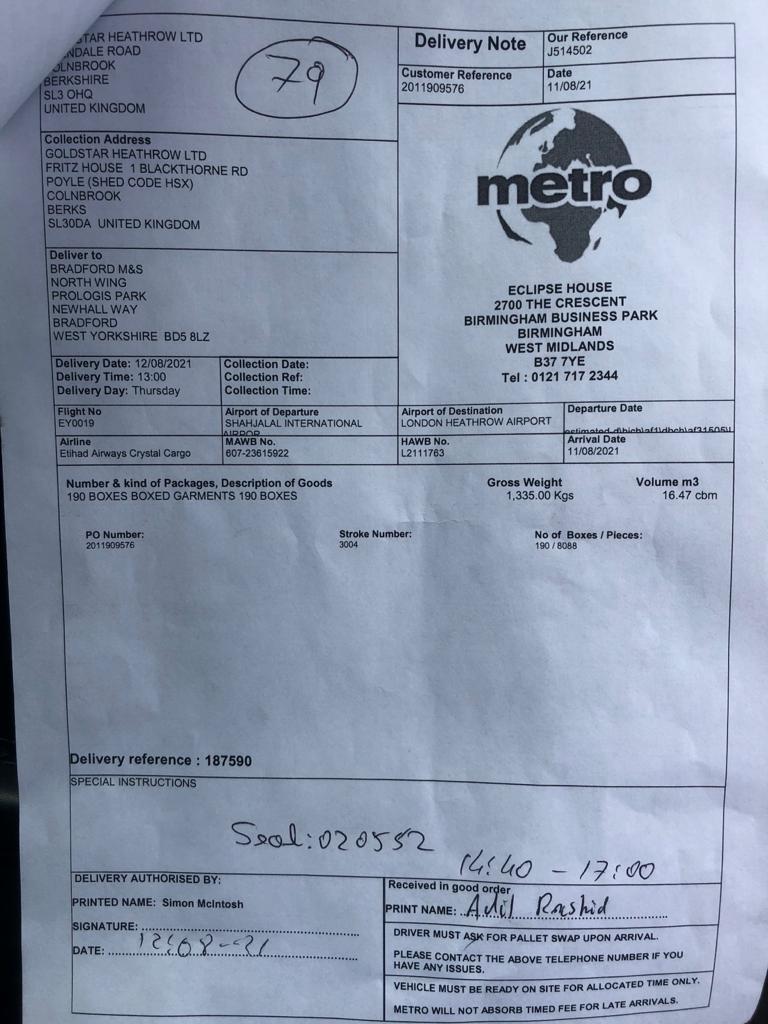 STAR HEATHROW LTD
NDALE ROAD
OLNBROOK
BERKSHIRE
SL3 OHQ
UNITED KINGDOM
79
Delivery Note
Our Reference
J514502
Customer Reference
2011909576
Date
11/08/21
Collection Address
GOLDSTAR HEATHROW LTD
FRITZ HOUSE 1 BLACKTHORNE RD
POYLE (SHED CODE HSX)
COLNBROOK
BERKS
SL30DA UNITED KINGDOM
metro
Deliver to
BRADFORD M&S
NORTH WING
PROLOGIS PARK
NEWHALL WAY
BRADFORD
WEST YORKSHIRE BD5 8LZ
ECLIPSE HOUSE
2700 THE CRESCENT
BIRMINGHAM BUSINESS PARK
BIRMINGHAM
WEST MIDLANDS
B37 7YE
Tel : 0121 717 2344
Delivery Date: 12/08/2021
Delivery Time: 13:00
Delivery Day: Thursday
Collection Date:
Collection Ref:
Collection Time:
Flight No
EY0019
Airport of Departure
SHAHJALAL INTERNATIONAL
AIRPOR
Airport of Destination
LONDON HEATHROW AIRPORT
Departure Date
Airline
Etihad Airways Crystal Cargo
MAWB No.
607-23615922
HAWB No.
L2111763
Arrival Date
11/08/2021
Number & kind of Packages, Description of Goods
190 BOXES BOXED GARMENTS 190 BOXES
Gross Weight
1,335.00 Kgs
Volume m3
16.47 cbm
PO Number:
2011909576
Stroke Number:
3004
No of Boxes / Pieces:
190 / 8088
Delivery reference : 187590
SPECIAL INSTRUCTIONS
Seal: 020552
14:40 - 17:00
DELIVERY AUTHORISED BY:
PRINTED NAME: Simon McIntosh
SIGNATURE:
DATE: 12-08-21
Received in good order
PRINT NAME: Adil Rashid
DRIVER MUST ASK FOR PALLET SWAP UPON ARRIVAL.
PLEASE CONTACT THE ABOVE TELEPHONE NUMBER IF YOU
HAVE ANY ISSUES.
VEHICLE MUST BE READY ON SITE FOR ALLOCATED TIME ONLY.
METRO WILL NOT ABSORB TIMED FEE FOR LATE ARRIVALS.